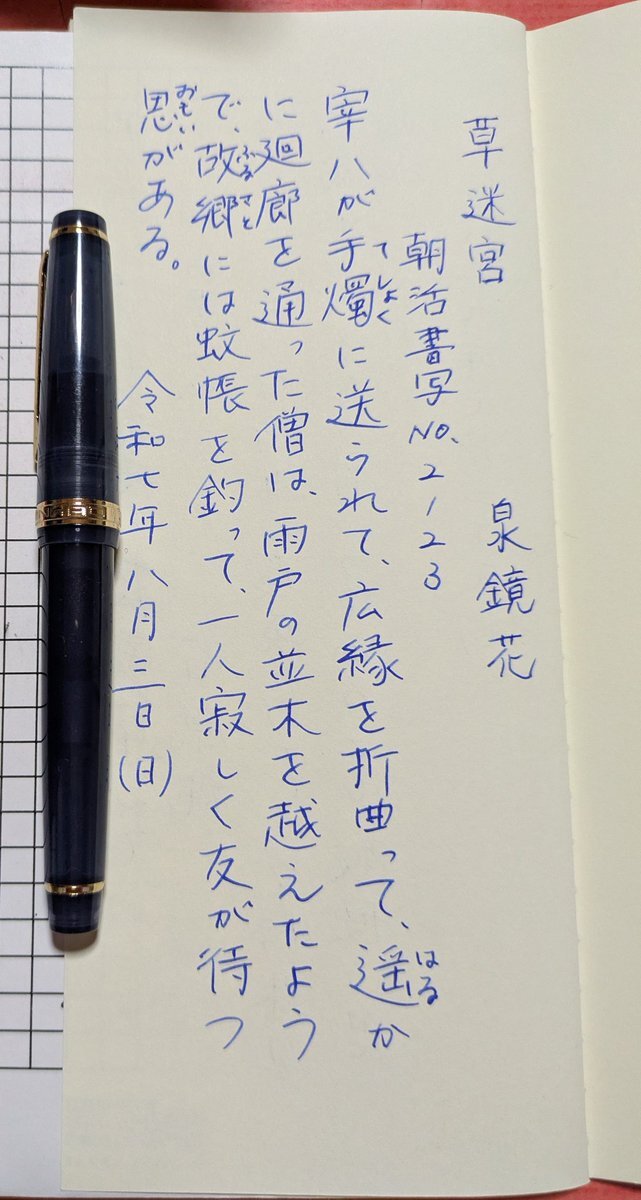 草迷宮 泉鏡花
朝活書写No.2123
宰八が手燭に送られて、広縁を折曲って、遥か
てしょく
はる
に廻廊を通った僧は、雨戸の並木を越えたよう
で、故郷には蚊帳を釣って、一人寂しく友が待つ
ふるさと
思がある。
おもい
令和七年八月三日(日)